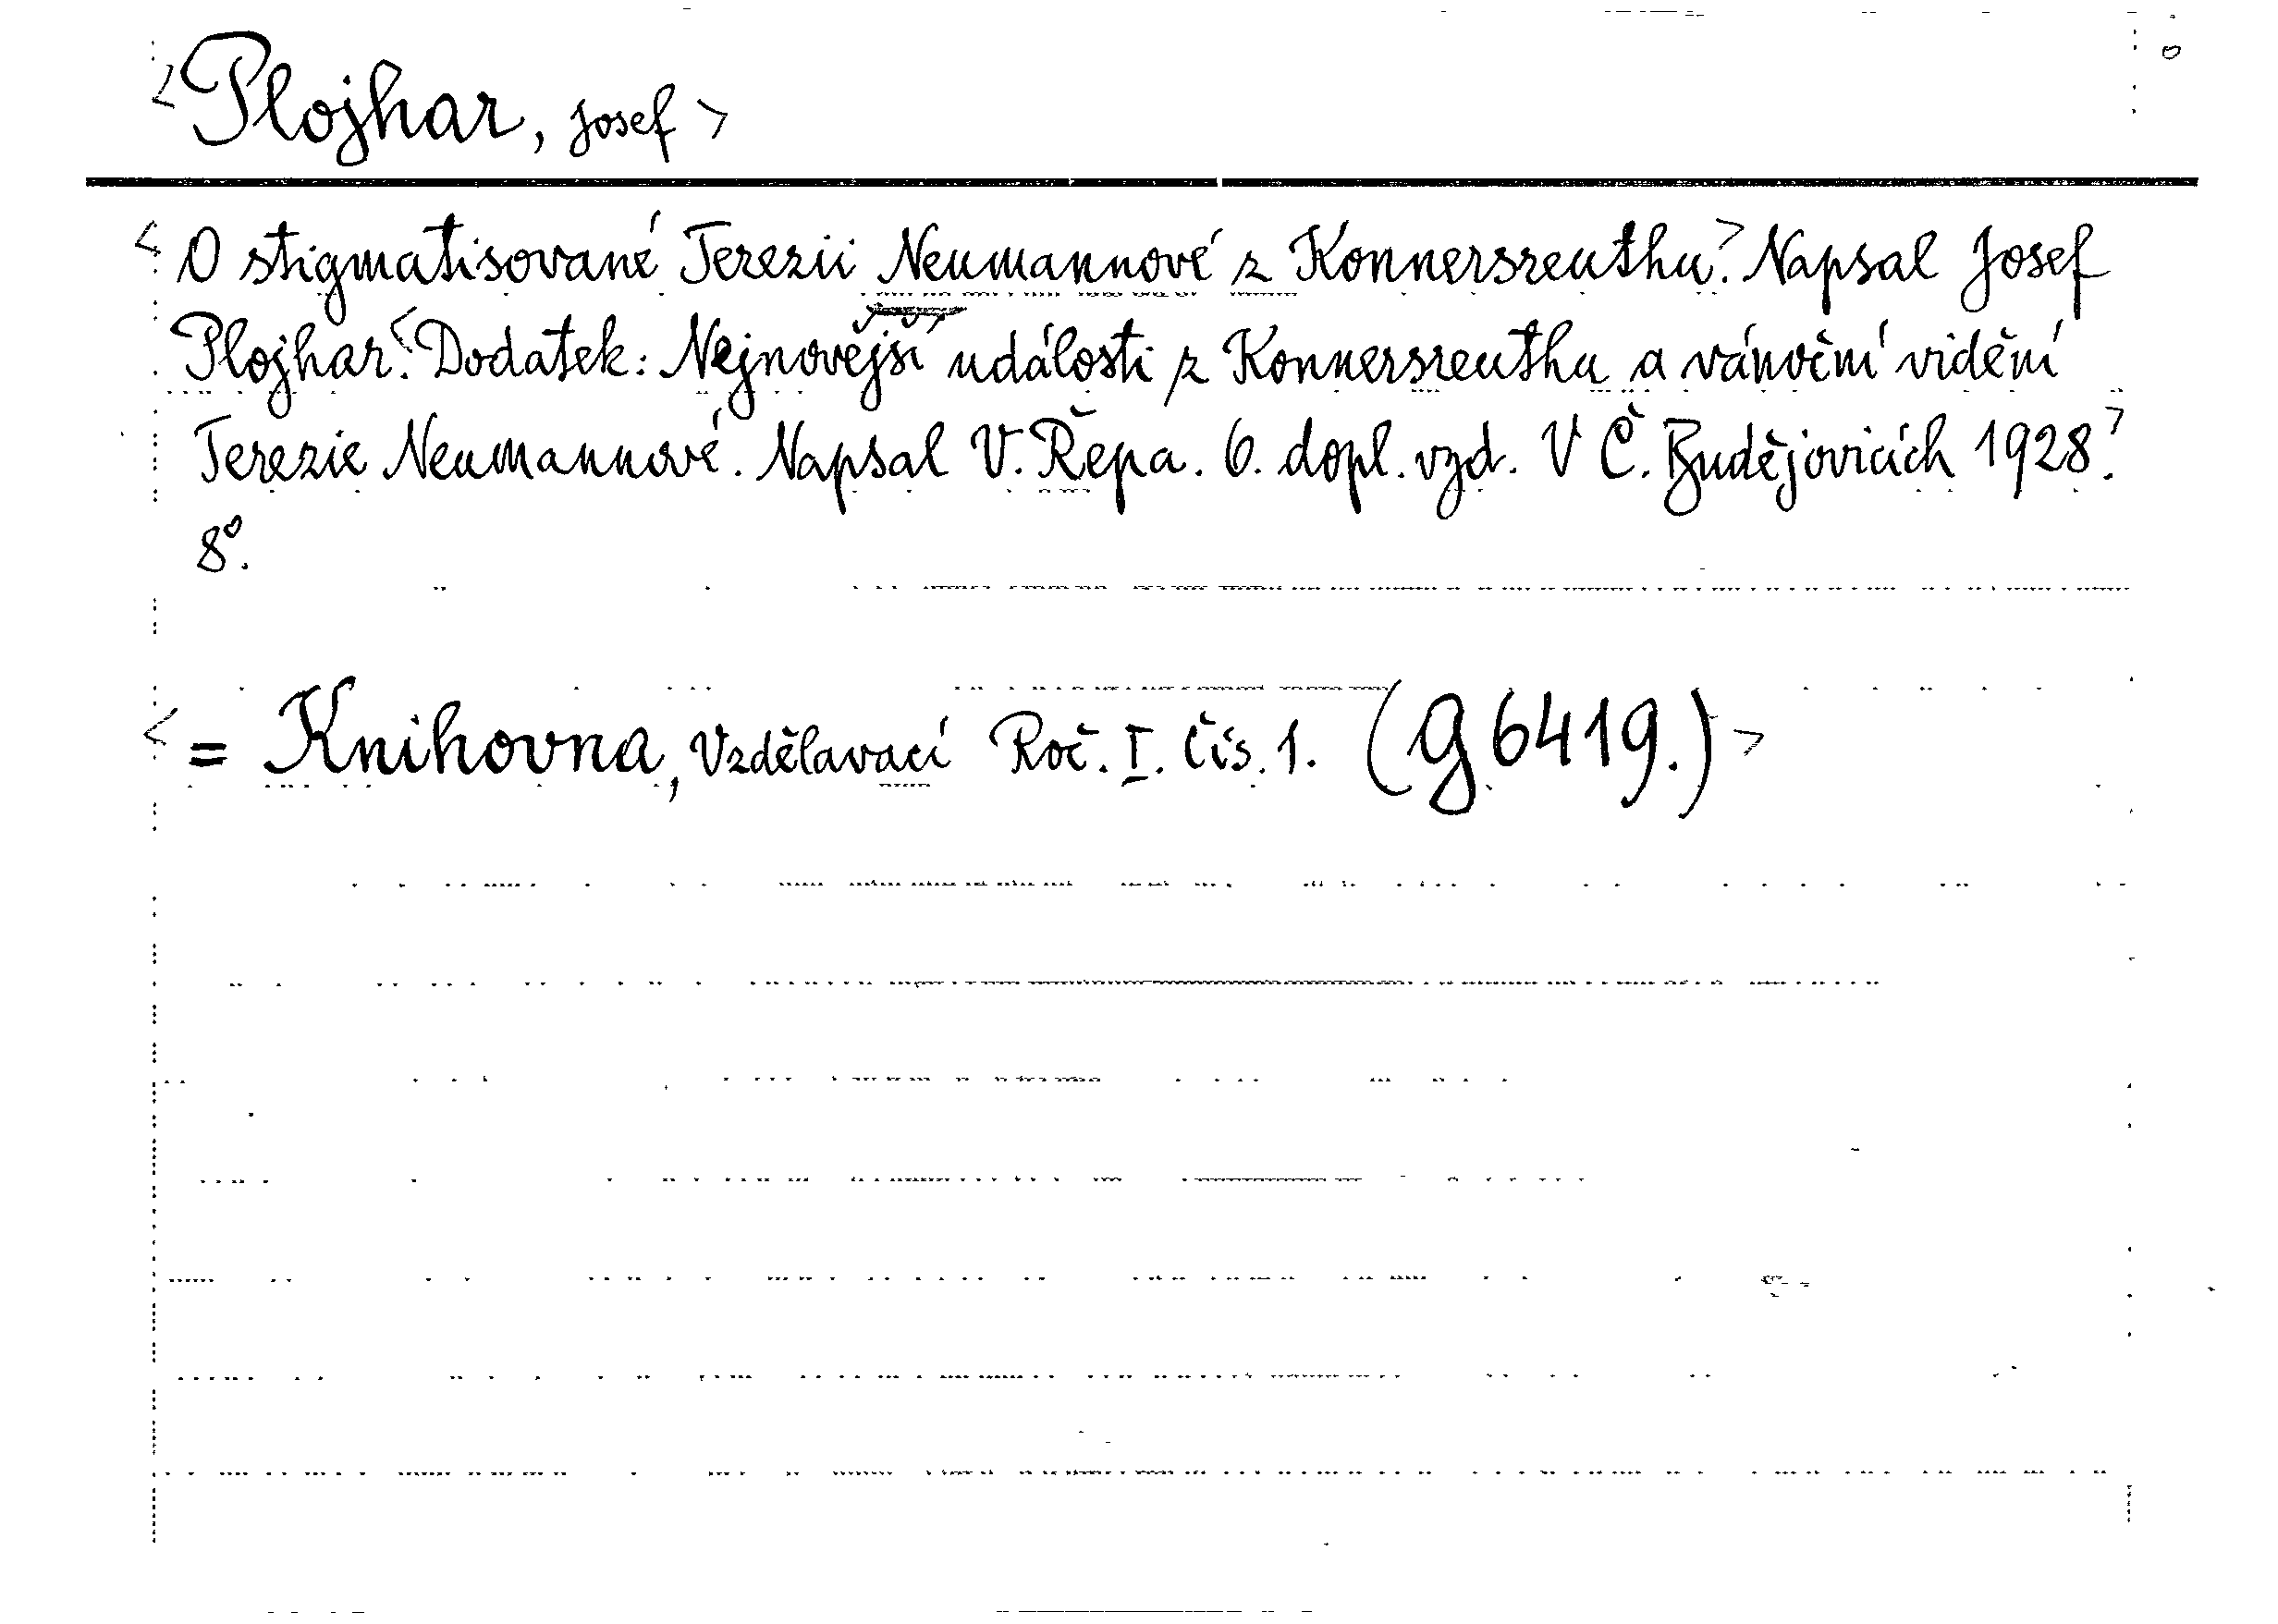 <Plojhar, Josef>
<O stigmatisované Terezii Neumannové z Konnersreuthu.> Napsal Josef
Plojhar.<Dodatek: Nejnovější události z Konnersreuthu a vánoční vidění
Terezie Neumannové. Napsal V. Řepa. 6. dopl. vyd. V Č. Budějovicích 1928.>
8°.
<= Knihovna, Vzdělavací Roč. I. Čís. 1. (g 6419.)>